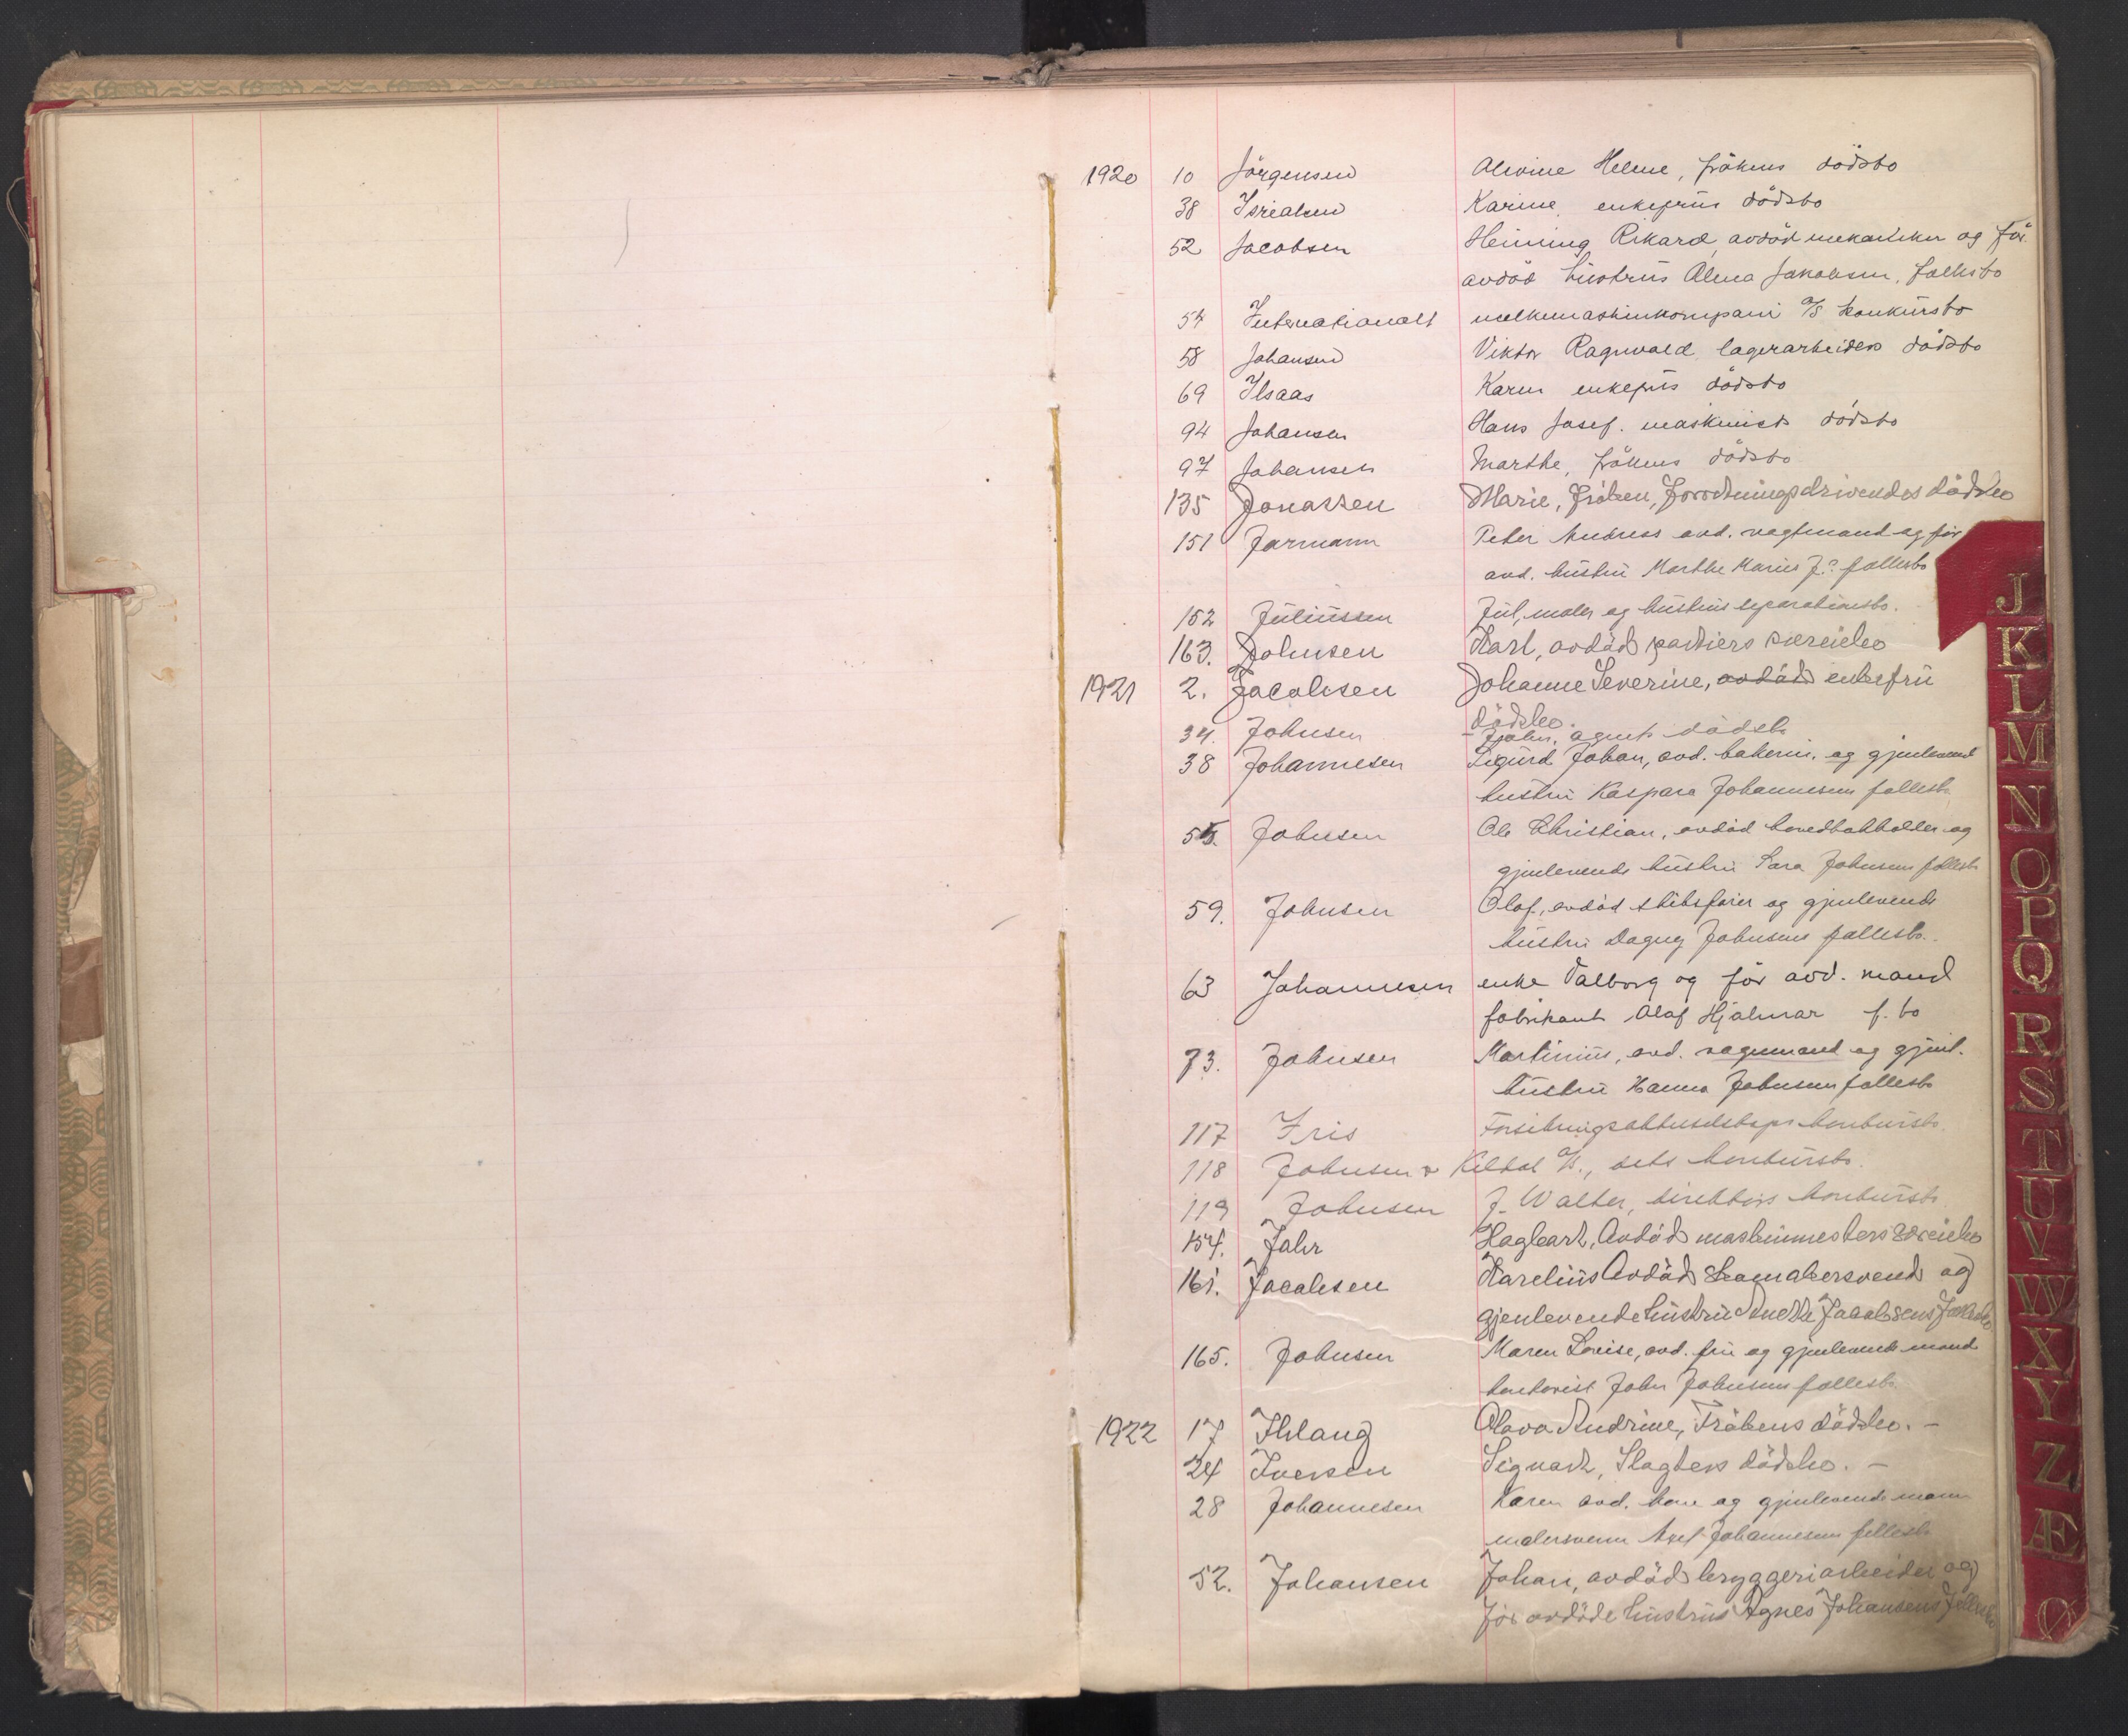 1920 10 Jörgensen Alvine Helene, frökens dödsbo
38 Isrealsen Karine, enkefrus dödsbo
52 Jacobsen Henning Rikard, avdöd mekaniker og för
avdöd hustrus Alma Jakobsen, fællesbo
54 Internationalt melkemaskinkompani A/S konkursbo
58 Johansen Viktor Ragnvald, lagerarbeiders dödsbo
69 Ilsaas Karen enkefrus dödsbo
94 Johansen Hans Josef. maskinists dödsbo
97 Johansen Marthe, frökens dödsbo
135 Jonassen Marie, Fröken, Forretningsdrivendes dödsbo
151 Jarmann Peter Andreas avd. vagtmand og för
avd. hustru Marthe Maries J.? fællesbo
152 Juliussen Jul, maler og hustrus separationsbo.
163. Johnsen Karl, avdöd portiers særeiebo
1921 2. Jacobsen Johanne Severine, avdöd enkefru
dödsbo.
34. Johnsen John, agents dödsbo
38 Johannesen Sigurd Johan, avd. bakerm. og gjenlevende
hustru Kaspara Johannesens fællesbo
55. Johnsen Ole Christian, avdöd hovedbokholder og
gjenlevende hustru Sara Johnsens fællesbo
59. Johnsen Olaf, avdöd skibsförer og gjenlevende
hustru Dagny Johnsens fællesbo.
63 Johannesen enke Valborg og för avd. mand
fabrikant Olaf Hjalmar f. bo
73. Johnsen Martinius, avd. vognmand og gjenl.
hustru Hanna Johnsens fællesbo
117 Iris Forsikringsaktieselskaps konkursbo.
118 Johnsen & Kildal A/S., dets konkursbo.
119 Johnsen J. Walter, direktörs konkursbo
154. Jahr Hagbart, Avdöd maskinmesters særeiebo
161. Jacobsen Karelius Avdöd Skomakersvend og
gjenlevende hustru Anette Jacobsens Fællesbo
165. Johnsen Maren Lovise, avd. fru og gjenlevende mand
kontorist John Johnsens fællesbo.
1922 17 Ihlang Olava Andrine, Frökens dödsbo. -
24 Iversen Signart, Slagters dödsbo. -
28 Johannesen Karen avd. kone og gjenlevende mann
malersvenn Axel Johannesens fellesbo
52. Johansen Johan, avdöd bryggeriarbeider og
för avdöde hustrus Agnes Johansens Fellesbo
J
K
L
M
N
O
P
Q
R
S
T
U
V
W
X
Y
Z
Æ
Ø